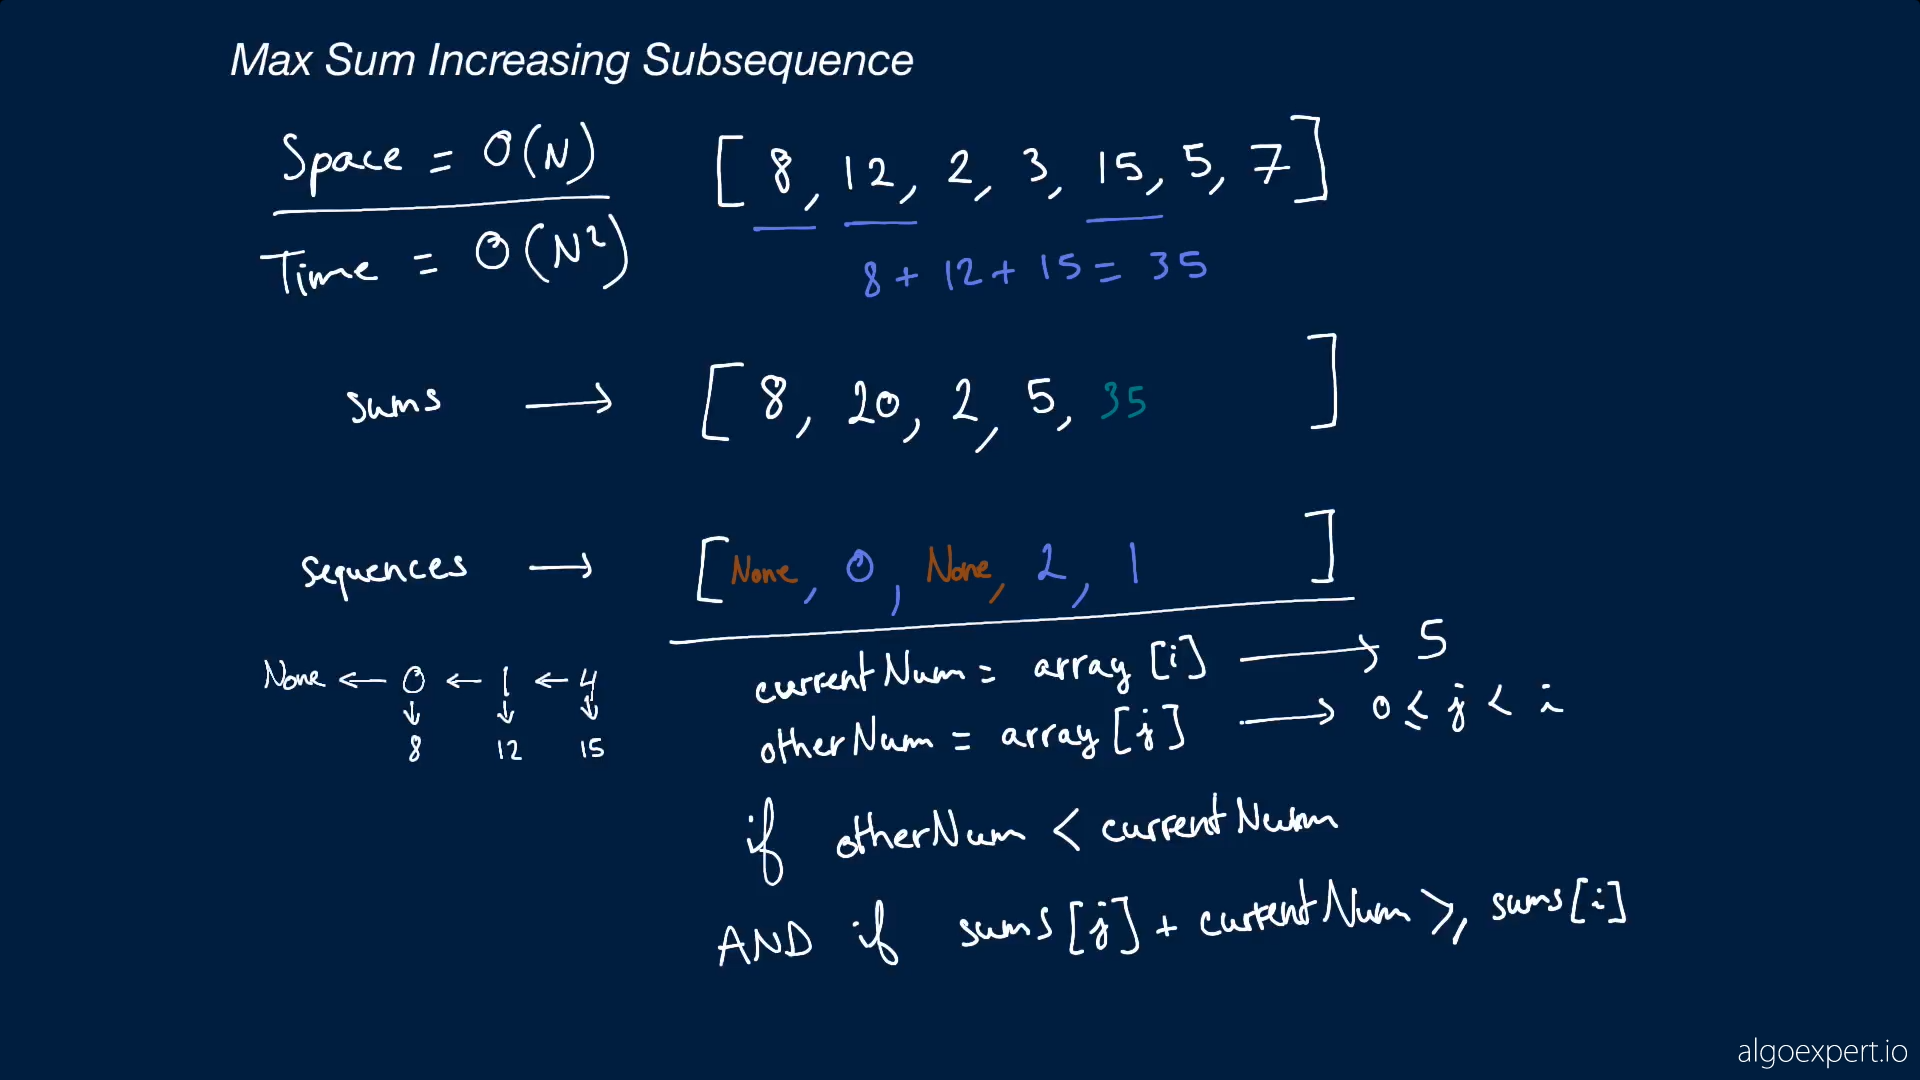 Max Sum Increasing Subsequence
Space = O(N)
Time = O(N²)
[8, 12, 2, 3, 15, 5, 7]
8 + 12 + 15 = 35
sums → [8, 20, 2, 5, 35 ]
sequences → [None, 0, None, 2, 1 ]
None ← 0 ← 1 ← 4
↓ ↓ ↓
8 12 15
currentNum = array[i] → 5
otherNum = array[j] → 0 ≤ j < i
if otherNum < currentNum
AND if sums[j] + currentNum >, sums[i]
algoexpert.io